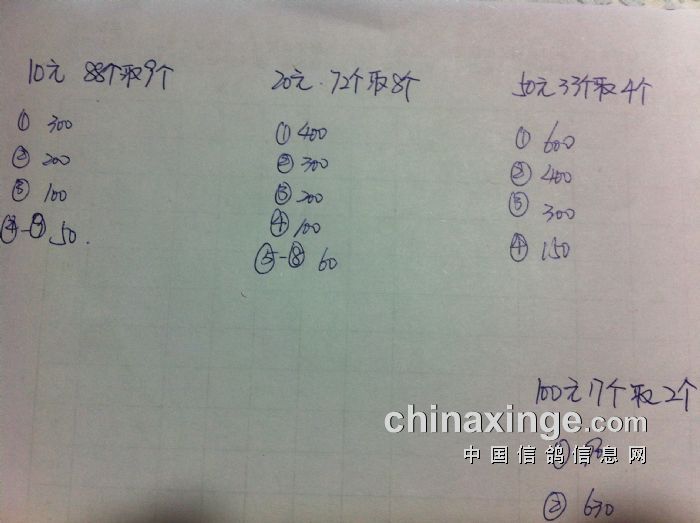 10元 88个取9个
① 300
② 200
③ 100
④-⑨ 50.
20元.72个取8个
① 400
② 300
③ 200
④ 100
⑤-⑧ 60
50元33个取4个
① 600
② 400
③ 300
④ 150
100元17个取2个
①
② 630
chinaxinge.com
中国信鸽信息网